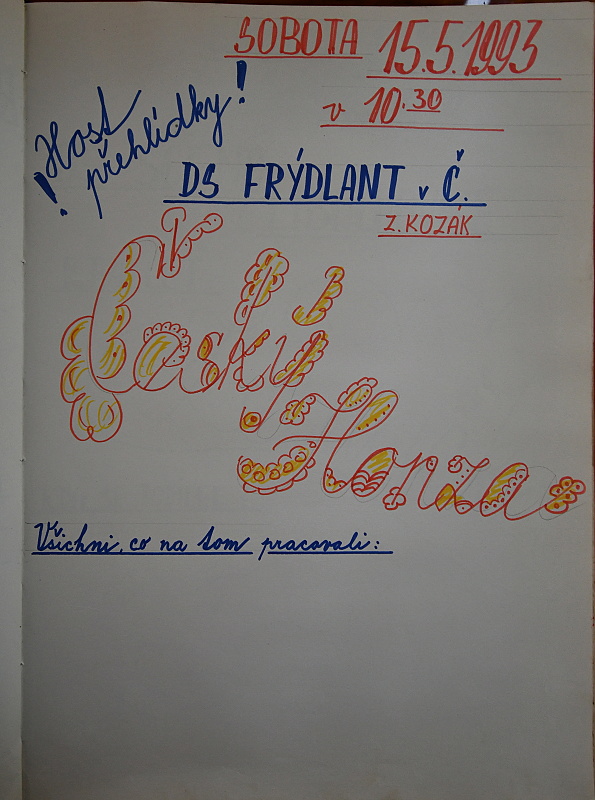 SOBOTA 15.5.1993
v 10.30
! Host přehlídky!
DS FRÝDLANT v Č.
Z. KOZÁK
Český
Honza
Všichni, co na tom pracovali: